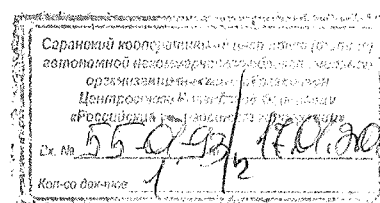 Саранский кооперативный институт (филиал)
автономной некоммерческой
организации
Центросоюза Российской Федерации
«Российский университет кооперации»
Вх. № 55-01.93/2 17.01.20
Кол-во док-тов 1